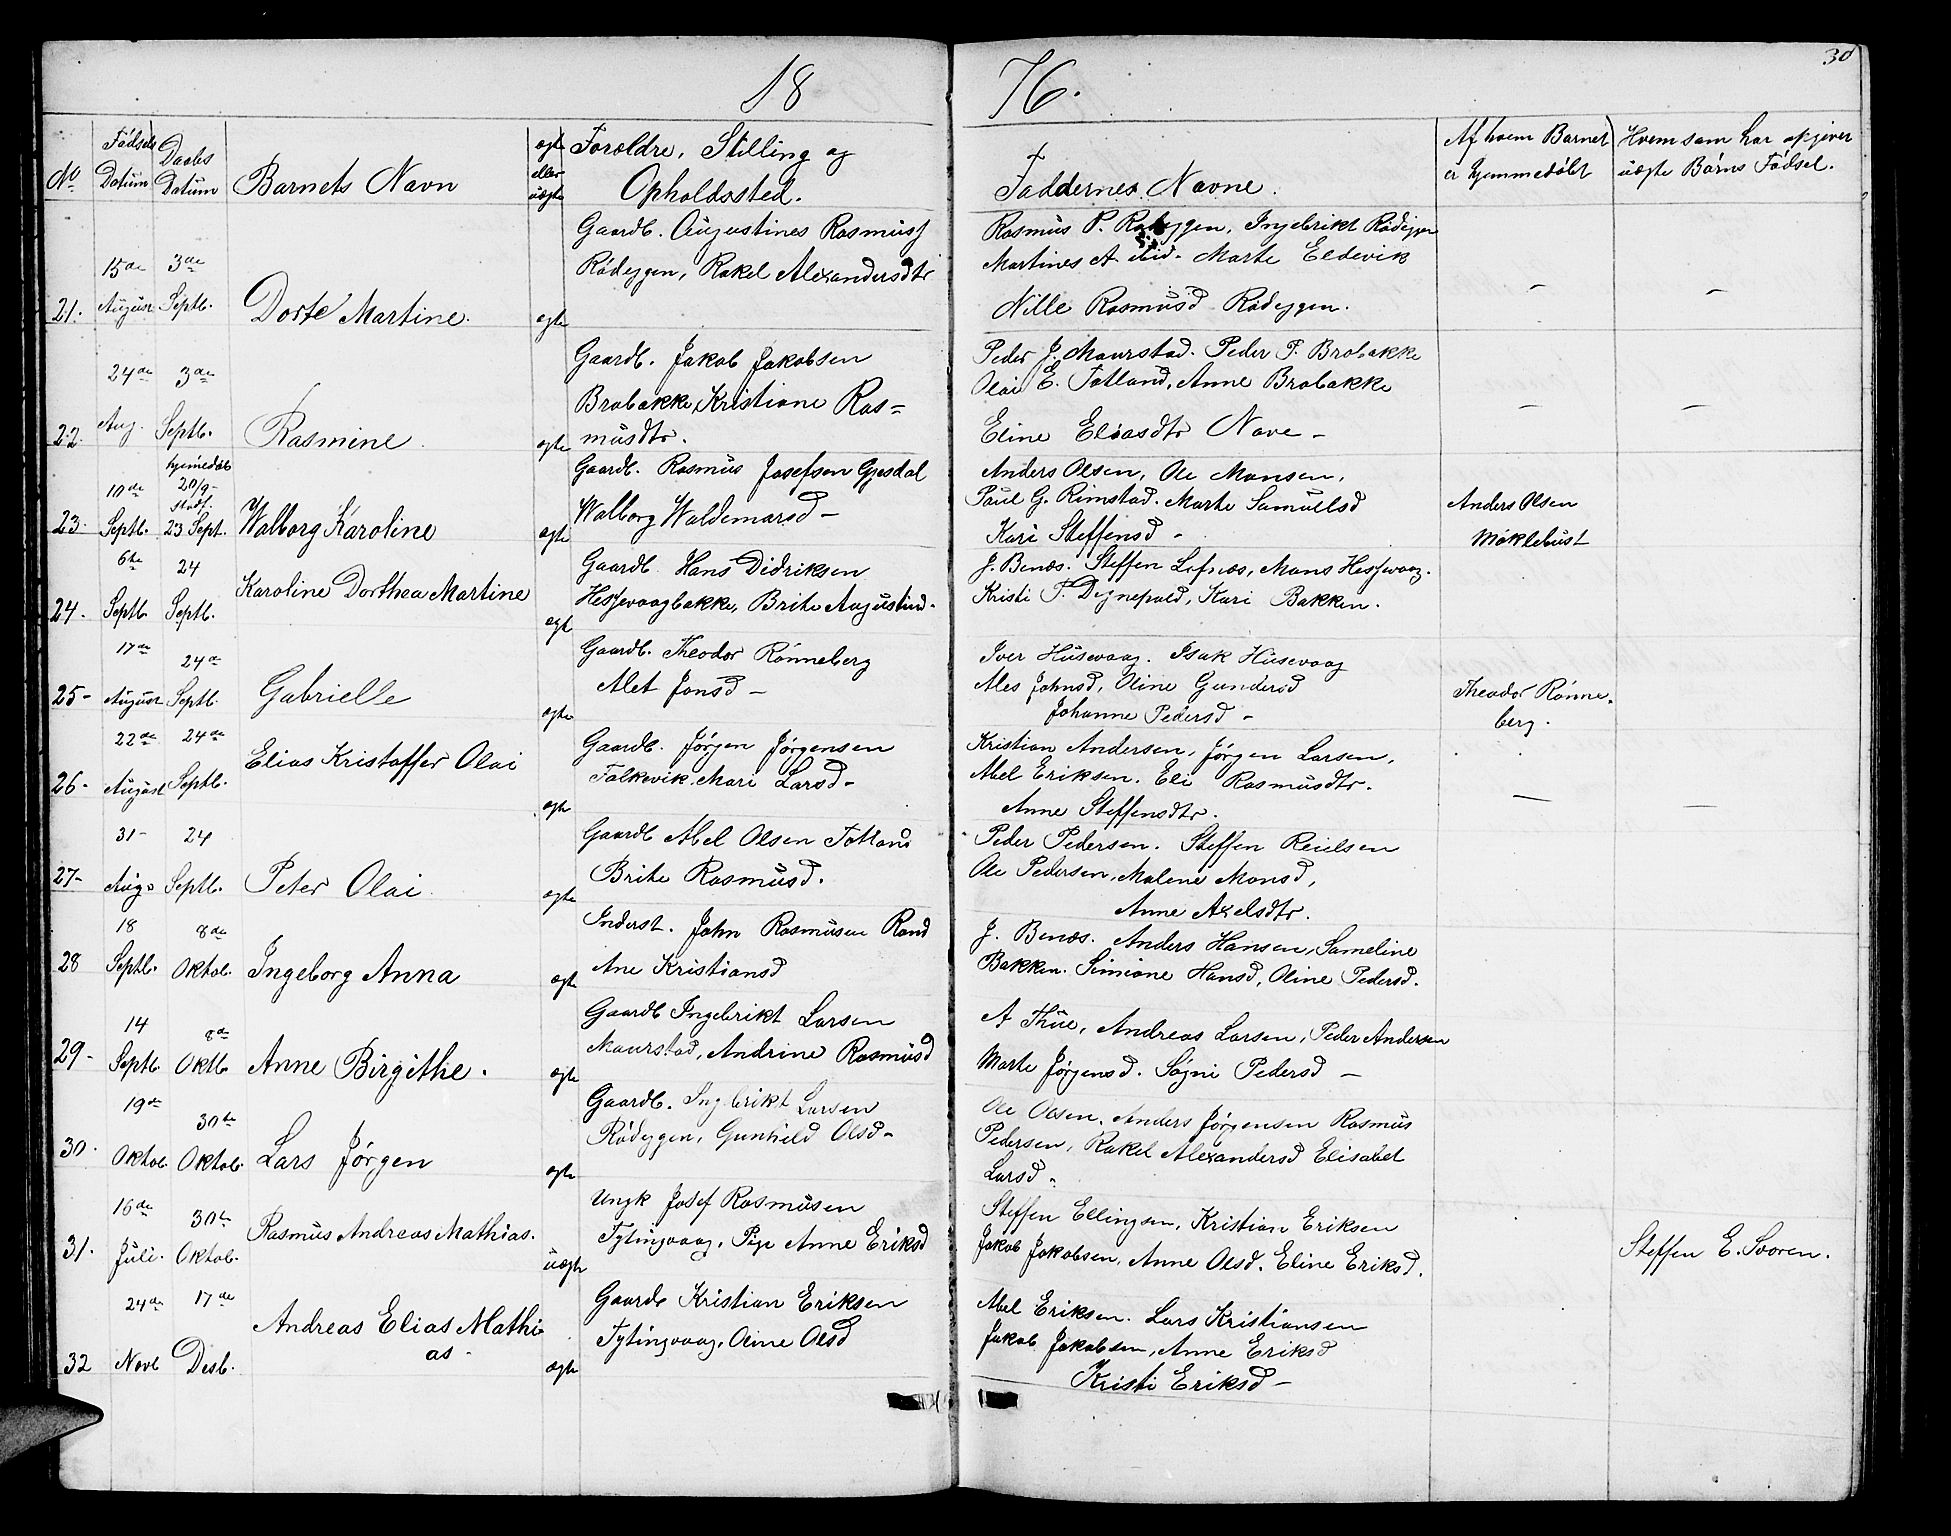 18 76.
30
No Fødsels Datum Daabs Datum Barnets Navn ægte eller uægte Forældre, Stilling og Opholdssted.
Faddernes Navne. Af hvem Barnet er hjemmedøbt Hvem som har opgivet uægte Børns Fødsel.
21. 15de August 3de Septb. Dorte Martine. ægte
Gaardb. Augustines Rasmuss
Rødeggen, Rakel Alexandersdtr
Rasmus P. Rødeggen, Ingebrikt Rødeggen
Martines A ibid. Marte Eldevik
Nille Rasmusd Rødeggen.
— —
22. 24de Aug. 3de Septb. Rasmine. ægte
Gaardb. Jakob Jakobsen
Brobakke, Kristiane Ras-
musdtr.
Peder J. Maurstad. Peder P. Brobakke
Olai E. Totland, Anne Brobakke
Eline Eliasdtr Nave -
— —
23. 10de Septb. hjemedøb 20/9 - stadf. 23 Sept. Walborg Karoline ægte
Gaardb. Rasmus Josefsen Gjesdal
Walborg Waldemarsd -
Anders Olsen, Ole Monsen,
Paul G. Rimstad. Marte Samuelsd
Kari Steffensd -
Anders Olsen
Møklebust
24. 6te Septb. 24 Septb. Karoline Dorthea Martine ægt
Gaardb. Hans Didriksen
Hessevaagbakke, Brite Augustind.
J. Benæs. Steffen Lefnæs, Mons Hessevaag.
Kristi T. Degnepold, Kari Bakken.
25- 17de August 24de Septb. Gabrielle ægte
Gaardb. Theodor Rønneberg
Alet Jonsd -
Iver Husevaag. Isak Husevaag
Ales Johnsd, Oline Gundersd
Johanne Pedersd -
Theodor Rønne-
berg.
26- 22de August 24de Septb. Elias Kristoffer Olai ægte
Gaardb. Jørgen Jørgensen
Falkevik. Mari Larsd-
Kristian Andersen, Jørgen Larsen,
Abel Eriksen. Eli Rasmusdtr.
Anne Steffensdtr.
— —
27- 31- Aug. 24 Septb. Peter Olai. ægte
Gaardb Abel Olsen Totland
Brite Rasmusd.
Peder Pedersen. Steffen Reielsen
Ole Pedersen, Malene Monsd,
Anne Axelsdtr.
28 18 Septb. 8de Oktob. Ingeborg Anna ægte
Inderst. John Rasmusen Rand
Ane Kristiansd
J. Benæs. Anders Hansen, Sameline
Bakken. Simione Hansd, Oline Pedersd.
29- 14 Septb. 8de Oktb Anne Birgithe. ægte
Gaardb Ingebrikt Larsen
Maurstad, Andrine Rasmusd
A Thue, Andreas Larsen, Peder Andersen
Marte Jørgensd. Søgni Pedersd -
30. 19de Oktob. 30te Oktob. Lars Jørgen ægte
Gaardb. Ingebrikt Larsen
Rødeggen, Gunhild Olsd-
Ole Olsen, Anders Jørgensen Rasmus
Pedersen, Rakel Alexandersd Elisabet
Larsd -
31. 16de Juli. 30te Oktob. Rasmus Andreas Mathias. uægte
Ungk Josef Rasmusen
Tytingvaag, Pige Anne Eriksd
Steffen Ellingsen, Kristian Eriksen
Jakob Jakobsen, Anne Olsd. Eline Eriksd.
Steffen E. Svoren.
32 24de Novb 17de Desb. Andreas Elias Mathi-
as- ægte
Gaardb Kristian Eriksen
Tytingvaag, Oline Olsd
Abel Eriksen. Lars Kristiansen
Jakob Jakobsen, Anne Eriksd
Kristi Eriksd -